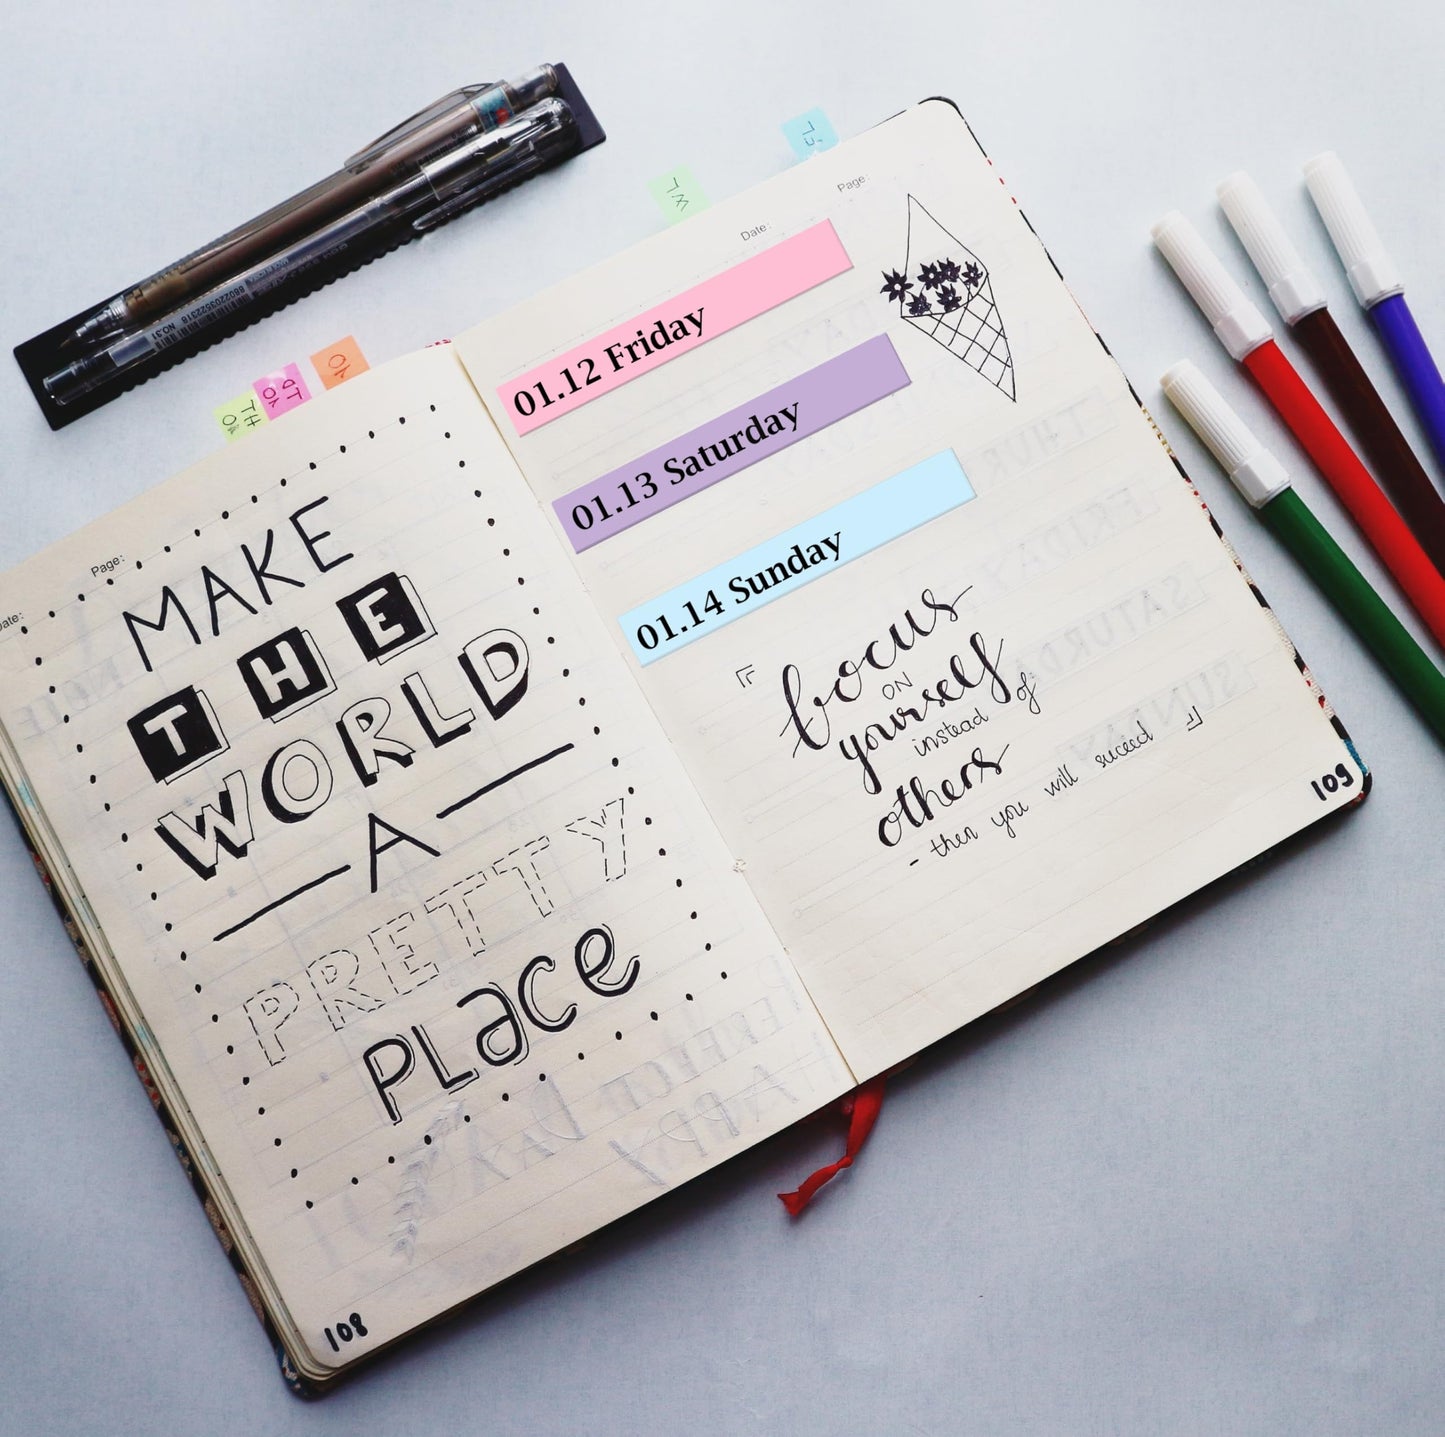 8802203522318
NO.31
Date:
Page:
MAKE
THE
WORLD
A
PRETTY
PLace
108
Date:
Page:
01.12 Friday
01.13 Saturday
01.14 Sunday
focus
ON
yourself
instead of
others
- then you will succeed
109